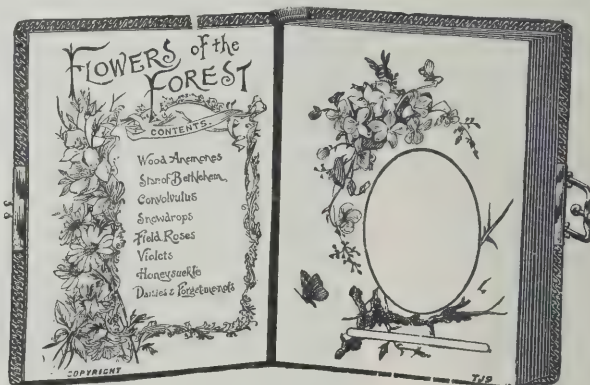 FLOWERS of the
FOREST
CONTENTS.
Wood Anemones
Star of Bethlehem
Convolvulus
Snowdrops
Field Roses
Violets
Honeysuckle
Daisies & Forget-me-nots
COPYRIGHT
TJS